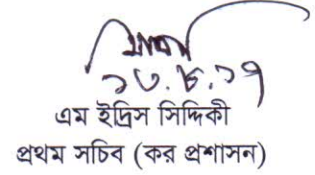 ১৩.৮.১৭
এম ইদ্রিস সিদ্দিকী
প্রথম সচিব (কর প্রশাসন)